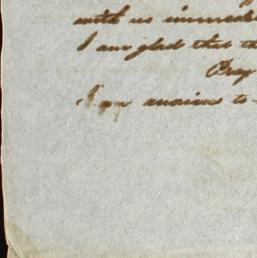 with us immedi
I am glad that th
Pray
I am anxious to